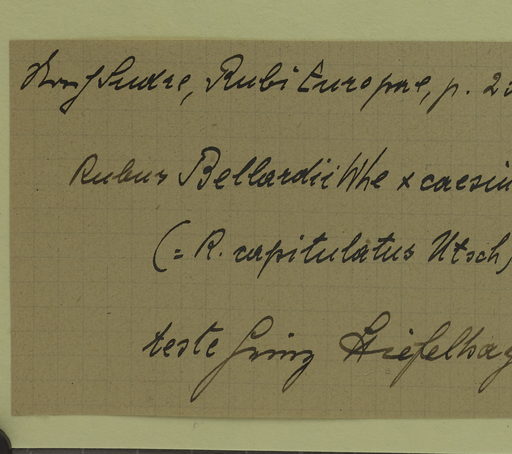 Sudre, Rubi Europae, p. 2
Rubus Bellardii Whe x caesiu
(= R. capitulatus Utsch)
teste Stiefelhag